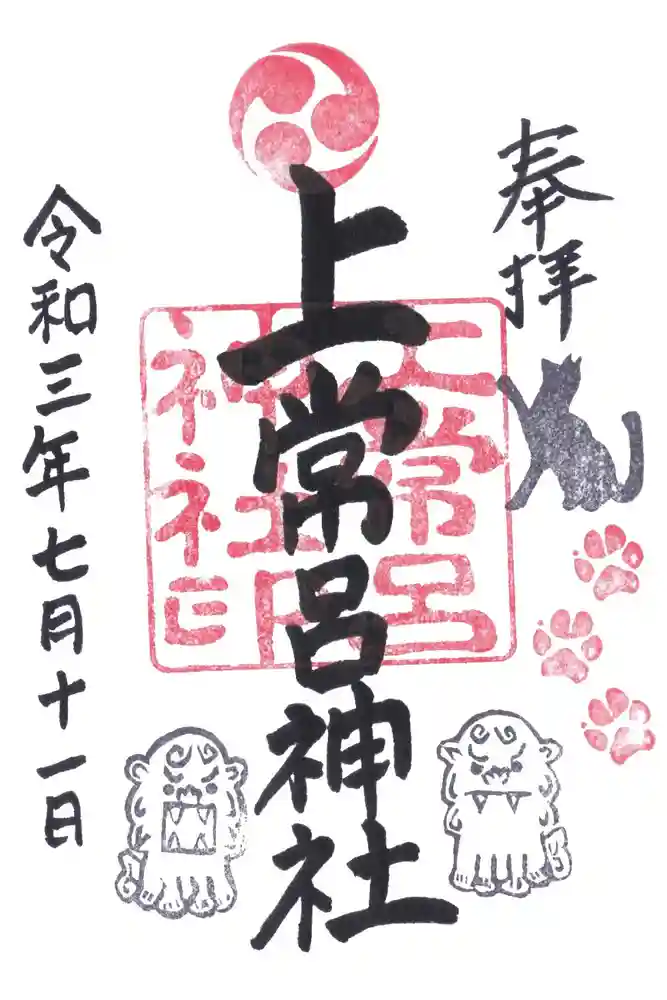 奉拝
上常呂神社
上常呂
神社印
令和三年七月十一日